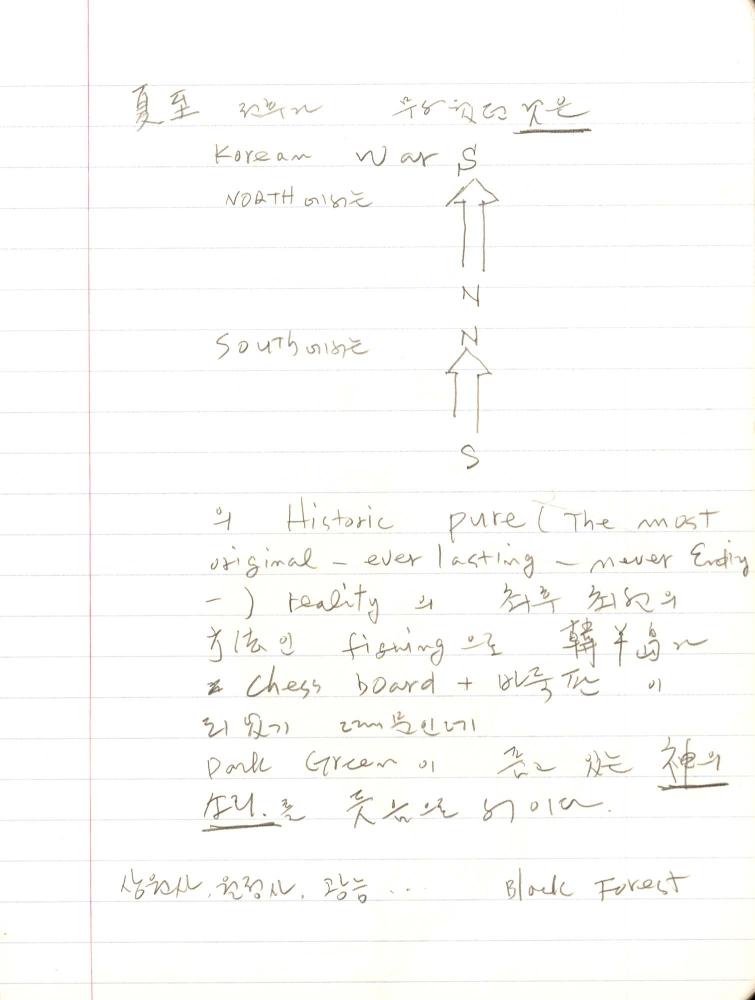 夏至 전부가 무상했던 것은
Korean War S
NORTH에서는
N
N
South에서는
S
의 Historic pure (The most
original - ever lasting - never Ending
-) reality의 최후 최선의
方法인 fighting으로 韓半島가
chess board + 바둑판이
되었기 때문인데
Dark Green이 품고 있는 神의
소리.를 듯음으로서이다.
상원사. 월정사. 광능... Black Forest